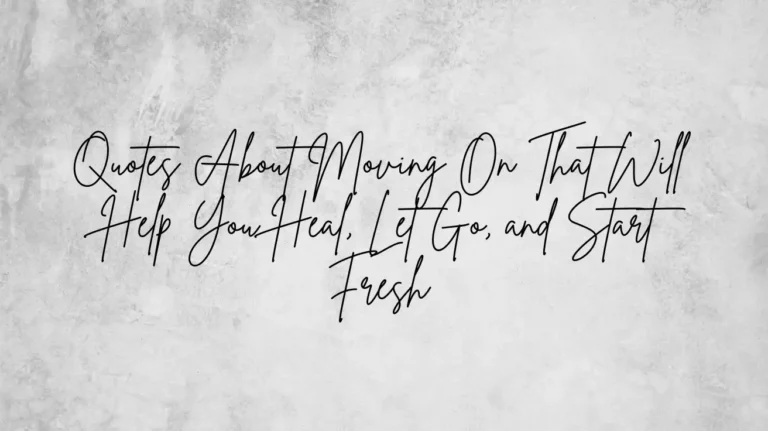 Quotes About Moving On That Will
Help You Heal, Let Go, and Start
Fresh